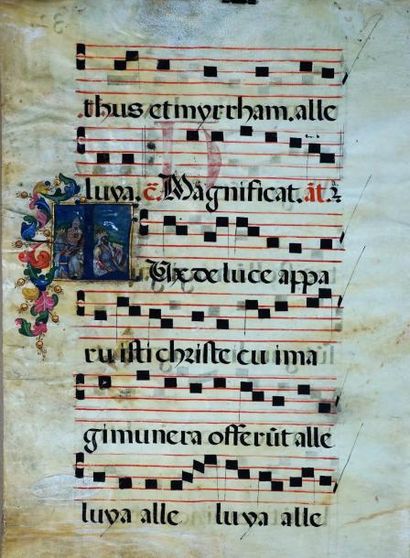 thus et myrrham. alle
luya. c̄. Magnificat. āt.
LUx de luce appa
ruisti christe cui ma
gi munera offerūt alle
luya alle luya alle